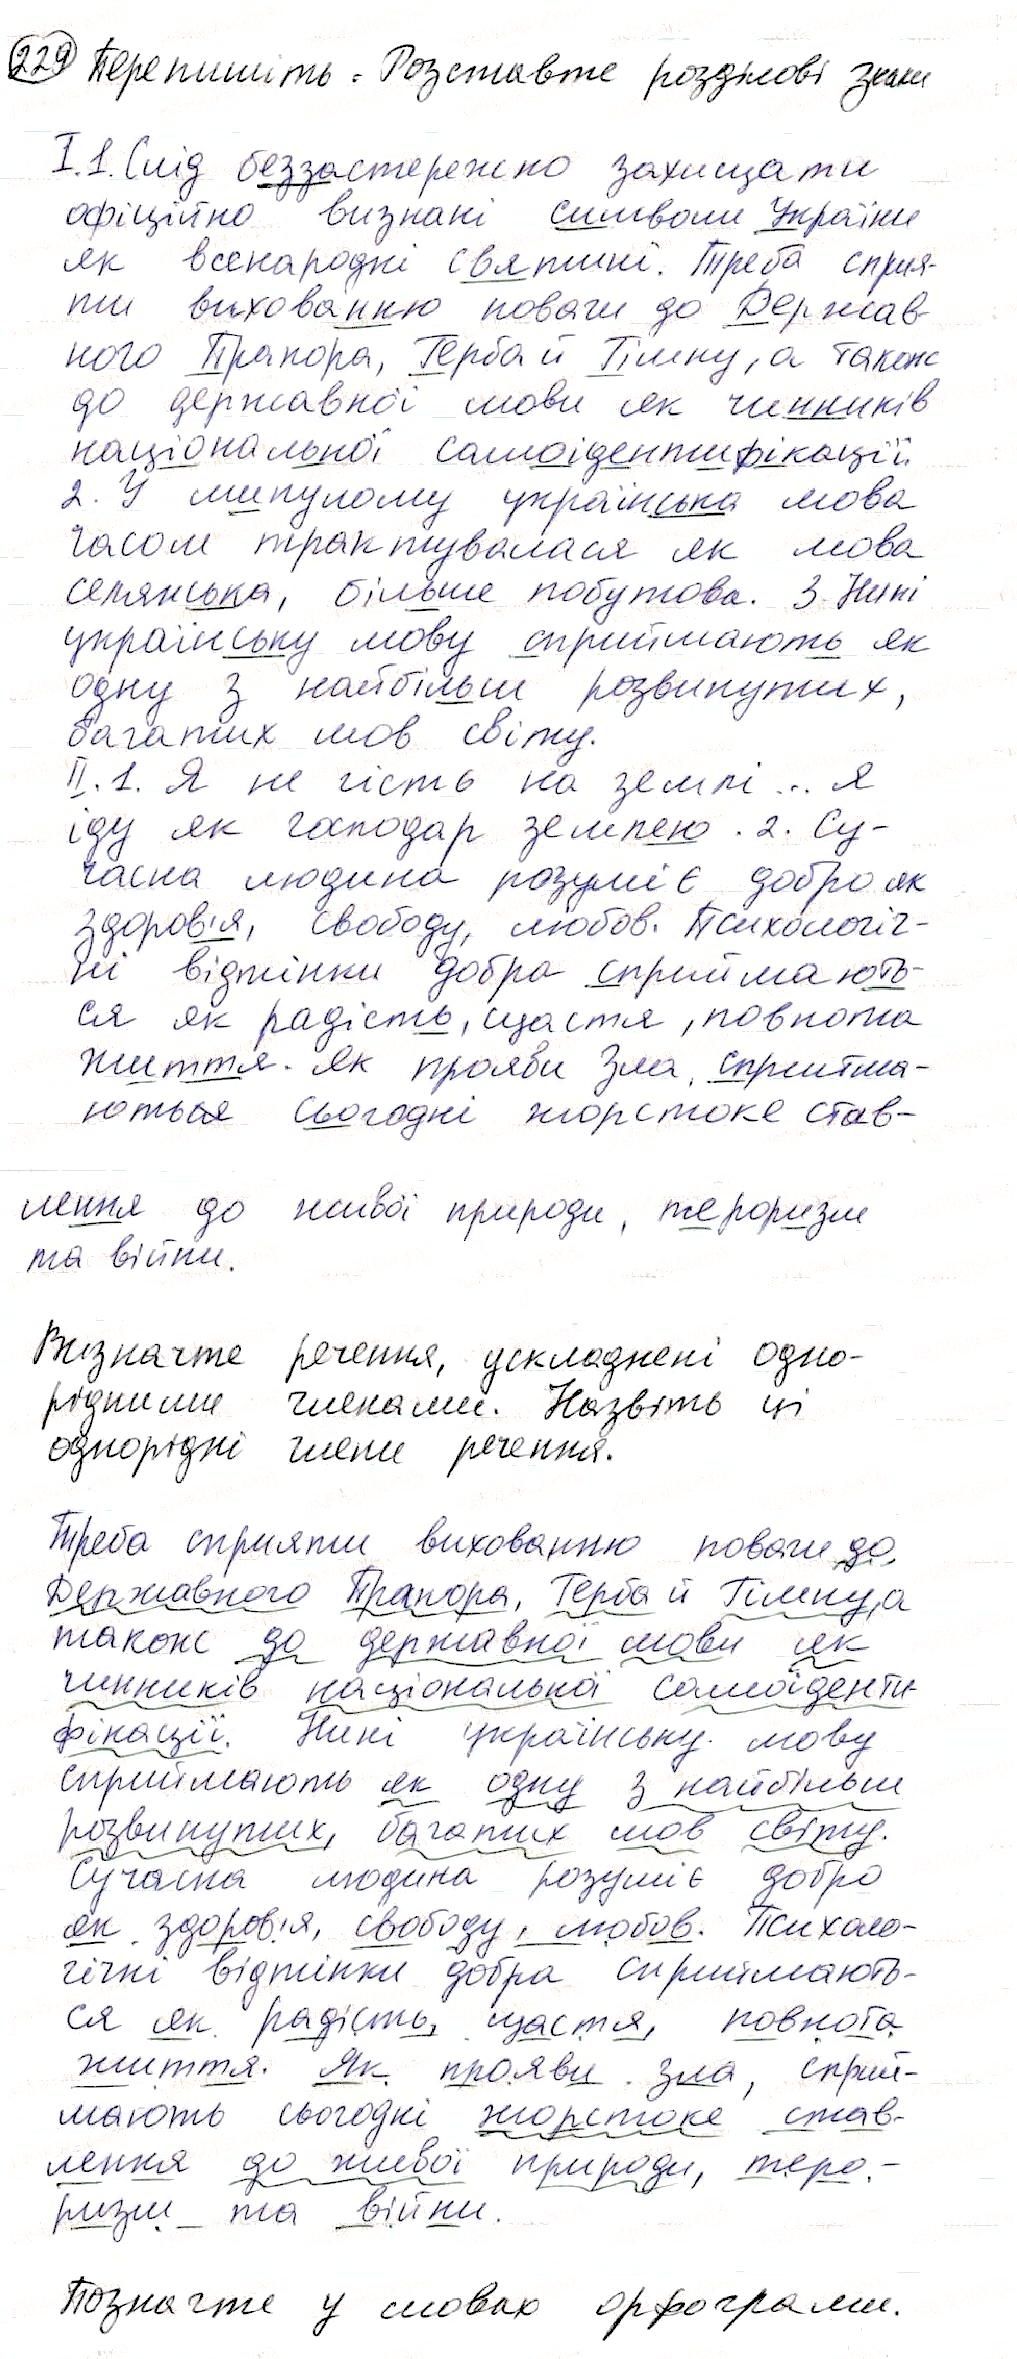 229 Перепишіть. Розставте розділові знаки
I.1. Слід беззастережно захищати
офіційно визнані символи України
як всенародні святині. Треба сприя-
ти вихованню поваги до Держав-
ного Прапора, Герба й Гімну, а також
до державної мови як чинників
національної самоідентифікації.
2. У минулому українська мова
часом трактувалася як мова
селянська, більше побутова. 3. Нині
українську мову сприймають як
одну з найбільш розвинутих,
багатих мов світу.
II.1. Я не гість на землі... Я
іду як господар землею. 2. Су-
часна людина розуміє добро як
здоров'я, свободу, любов. Психологіч-
ні відтінки добра сприймають-
ся як радість, щастя, повнота
життя. Як прояви зла, сприйма-
ються сьогодні жорстоке став-
лення до живої природи, тероризм
та війни.
Визначте речення, ускладнені одно-
рідними членами. Назвіть ці
однорідні члени речення.
Треба сприяти вихованню поваги до
Державного Прапора, Герба й Гімну, а
також до державної мови як
чинників національної самоіденти
фікації. Нині українську мову
сприймають як одну з найбільш
розвинутих, багатих мов світу.
Сучасна людина розуміє добро
як здоров'я, свободу, любов. Психоло-
гічні відтінки добра сприймають-
ся як радість, щастя, повнота
життя. Як прояви зла, сприй-
мають сьогодні жорстоке став-
лення до живої природи, теро-
ризм та війни.
Позначте у словах орфограми.